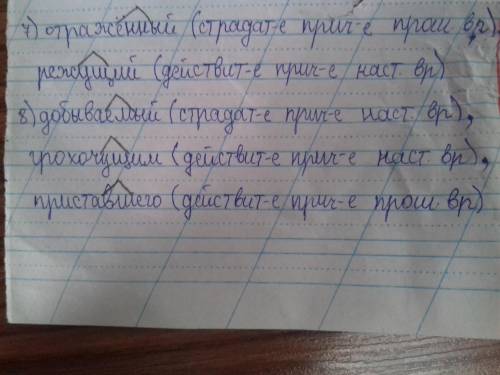 7) отражённый (страдат-е прич-е прош. вр),
режущий (действит-е прич-е наст. вр)
8) добываемый (страдат-е прич-е наст. вр),
грохочущим (действит-е прич-е наст. вр),
приставшего (действит-е прич-е прош. вр)